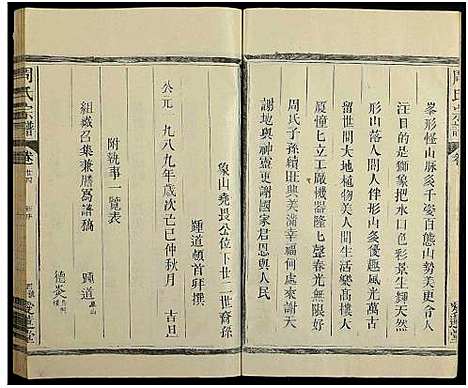 周氏宗譜
峯形怪山脉多千变百態山勢美更令人
注目的是獅象把水口色彩景生輝天然
形山落人間人伴形山多優趣風光萬古
留世間大地植物美人間生活樂髙樓人
厦憧七工厰機器隆七聲春光無限好
周氏子孫續旺興美滿幸福何処來謝天
謝地與神靈更謝國家君恩與人民
象山堯畏公位下廿二世裔孫
踵道頓首拜撰
公元一九八九年歲次己巳仲秋月 吉旦
附執事一覽表
組織召集兼謄寫譜稿 踵道
德炎
周氏宗譜
卷
愛蓮堂